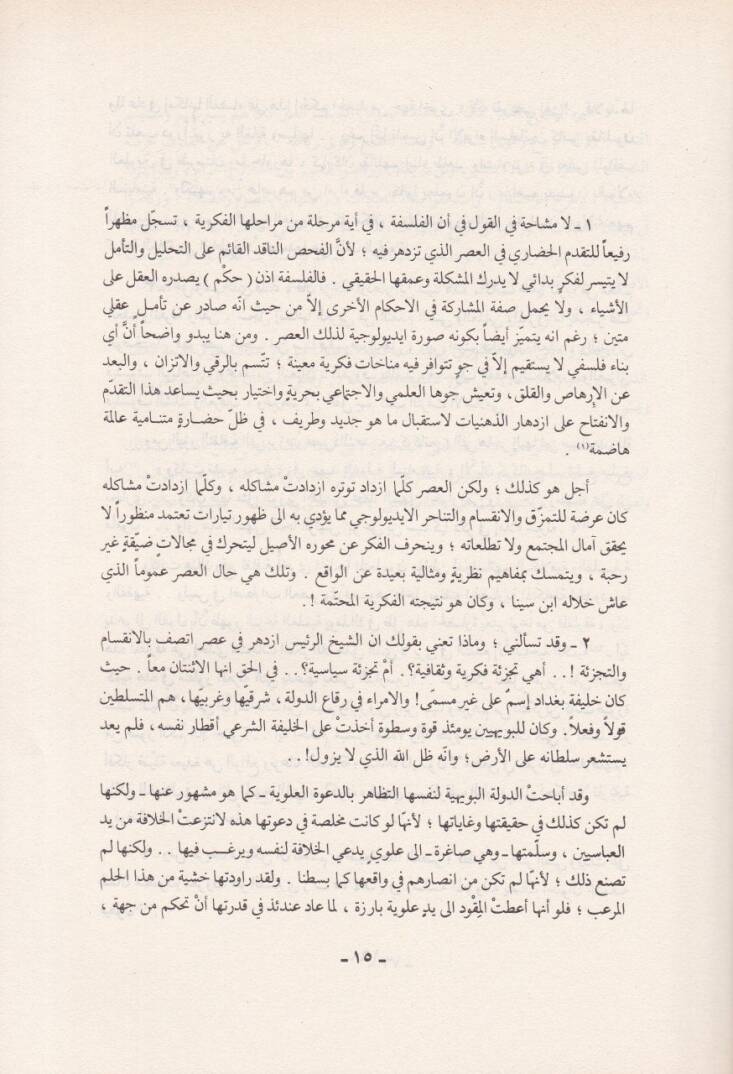 ١ ـ لا مشاحة في القول في أن الفلسفة ، في أية مرحلة من مراحلها الفكرية ، تسجّل مظهراً
رفيعاً للتقدم الحضاري في العصر الذي تزدهر فيه ؛ لأنَّ الفحص الناقد القائم على التحليل والتأمل
لا يتيسر لفكرٍ بدائي لا يدرك المشكلة وعمقها الحقيقي . فالفلسفة اذن ( حكْم ) يصدره العقل على
الأشياء ، ولا يحمل صفة المشاركة في الاحكام الأخرى إلاّ من حيث انّه صادر عن تأمـل عقلي
متين ؛ رغم انه يتميّز أيضاً بكونه صورة ايديولوجية لذلك العصر . ومن هنا يبدو واضحاً أنَّ أي
بناء فلسفي لا يستقيم إلاّ في جوٍ تتوافر فيه مناخات فكرية معينة ؛ تتّسم بالرقي والاتزان ، والبعد
عن الإرهاص والقلق، وتعيش جوها العلمي والاجتماعي بحريةٍ واختيار بحيث يساعد هذا التقدّم
والانفتاح على ازدهار الذهنيات لاستقبال ما هو جديد وطريف ، في ظلّ حضارةٍ متنـامية عالمة
هاضمة(١) .
أجل هو كذلك ؛ ولكن العصر كلّما ازداد توتره ازدادتْ مشاكله ، وكلّما ازدادتْ مشاكله
كان عرضة للتمزّق والانقسام والتناحر الايديولوجي مما يؤدي به الى ظهور تيارات تعتمد منظوراً لا
يحقق آمال المجتمع ولا تطلعاته ؛ وينحرف الفكر عن محوره الأصيل ليتحرك في مجالاتٍ ضيّقةٍ غير
رحبة ، ويتمسك بمفاهيم نظريةٍ ومثالية بعيدة عن الواقع . وتلك هي حال العصر عموماً الذي
عاش خلاله ابن سينا ، وكان هو نتيجته الفكرية المحتّمة !.
٢ ـ وقد تسألني ؛ وماذا تعني بقولك ان الشيخ الرئيس ازدهر في عصر اتصف بالانقسام
والتجزئة !.. أهي تجزئة فكرية وثقافية؟. أمْ تجزئة سياسية؟.. في الحق انها الاثنتان معاً . حيث
كان خليفة بغداد إسمٌ على غير مسمّى! والامراء في رقاع الدولة ، شرقيّها وغربيّها، هم المتسلطين
قولاً وفعلاً. وكان للبويهيين يومئذ قوة وسطوة أخذتْ على الخليفة الشرعي أقطار نفسه، فلم يعد
يستشعر سلطانه على الأرض؛ وانّه ظل الله الذي لا يزول!..
وقد أباحتْ الدولة البويهية لنفسها التظاهر بالدعوة العلوية ـ كما هو مشهور عنها ـ ولكنها
لم تكن كذلك في حقيقتها وغاياتها ؛ لأنهّا لو كانت مخلصة في دعوتها هذه لانتزعتْ الخلافة من يد
العباسيين ، وسلّمتها ـ وهي صاغرة ـ الى علويٍ يدعي الخلافة لنفسه ويرغب فيها .. ولكنها لم
تصنع ذلك ؛ لأنهّا لم تكن من انصارهم في واقعها كما بسطنا . ولقد راودتها خشية من هذا الحلم
المرعب ؛ فلو أنها أعطتْ المِقْود الى يدٍ علوية بارزة ، لما عاد عندئذ في قدرتها أنْ تحكم من جهة ،
ـ ١٥ ـ